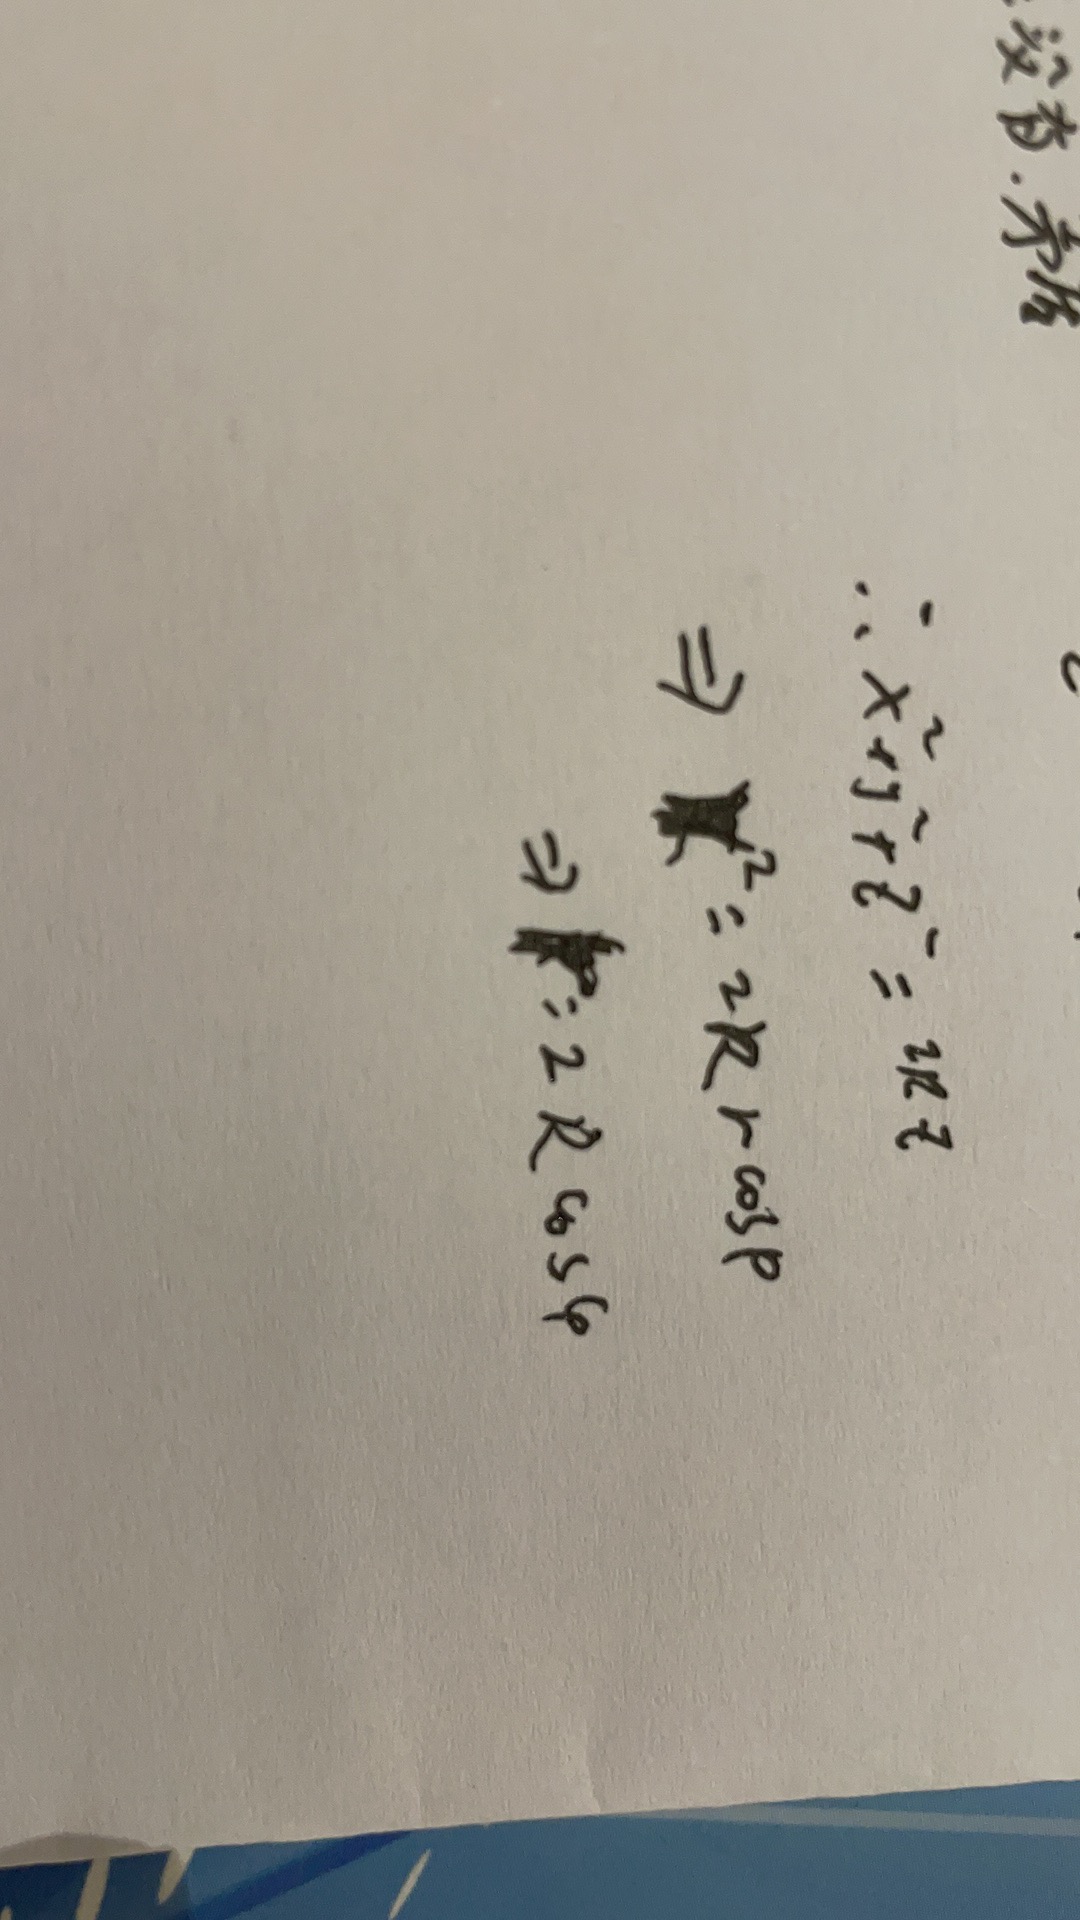 没有.求出
∴ x²+y²+z² = 2Rz
⇒ r² = 2R r cosφ
⇒ r = 2R cosφ